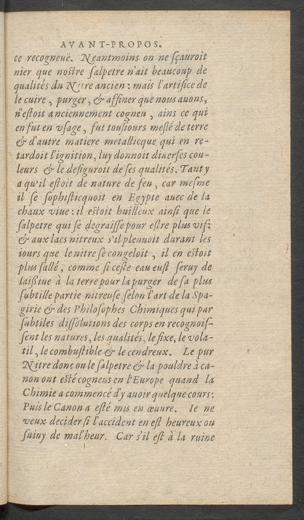 AVANT-PROPOS.
ce recogneuë. Neantmoins on ne sçauroit
nier que nostre salpetre n'ait beaucoup de
qualités du Nitre ancien : mais l'artifice de
le cuire, purger, & affiner que nous auons,
n'estoit anciennement cogneu, ains ce qui
en fut en vsage, fut tousiours meslé de terre
& d'autre matiere metallicque qui en re-
tardoit l'ignition, luy donnoit diuerses cou-
leurs & le desiguroit de ses qualités. Tant y
a qu'il estoit de nature de feu, car mesme
il se sophisticquoit en Egypte auec de la
chaux viue : il estoit huilleux ainsi que le
salpetre qui se degraisse pour estre plus vif:
& aux lacs nitreux s'il pleuuoit durant les
iours que le nitre se congeloit, il en estoit
plus sallé, comme si ceste eau eust seruy de
laissiue à la terre pour la purger de sa plus
subtille partie nitreuse, selon l'art de la Spa-
girie & des Philosophes Chimiques qui par
subtiles dissolutions des corps en recognois-
sent les natures, les qualités, le fixe, le vola-
til, le combustible & le cendreux. Le pur
Nitre donc ou le salpetre & la pouldre à ca-
non ont esté cogneus en l'Europe quand la
Chimie a commencé d'y auoir quelque cours:
Puis le Canon a esté mis en œuure. Ie ne
veux decider si l'accident en est heureux ou
suiuy de mal'heur. Car s'il est à la ruine